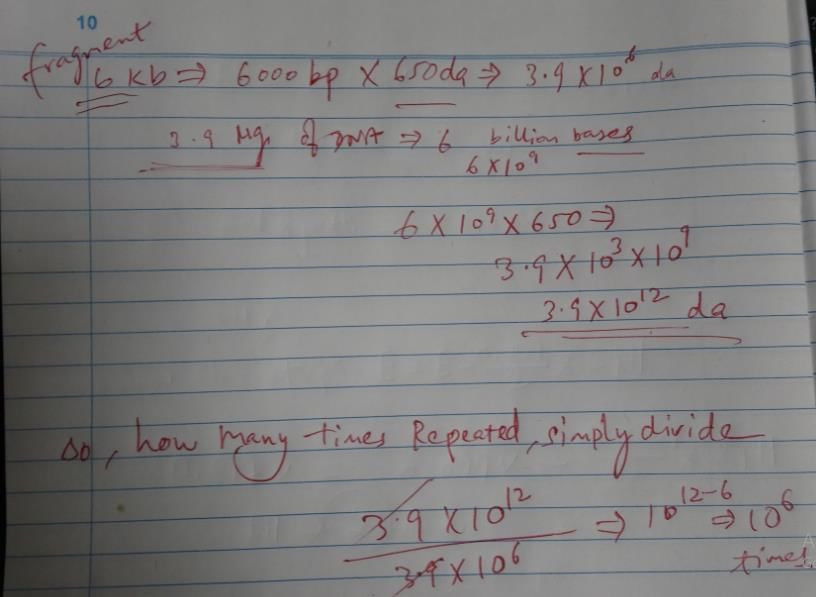 10
fragment
6 Kb ⇒ 6000 bp X 650 da ⇒ 3.9 X 10⁶ da
3.9 Mg. of DNA ⇒ 6 billion bases
6 X 10⁹
6 X 10⁹ X 650 ⇒
3.9 X 10³ X 10⁹
3.9 X 10¹² da
so, how many times Repeated, simply divide
3.9 X 10¹² / 3.9 X 10⁶ ⇒ 10¹²⁻⁶ ⇒ 10⁶
times